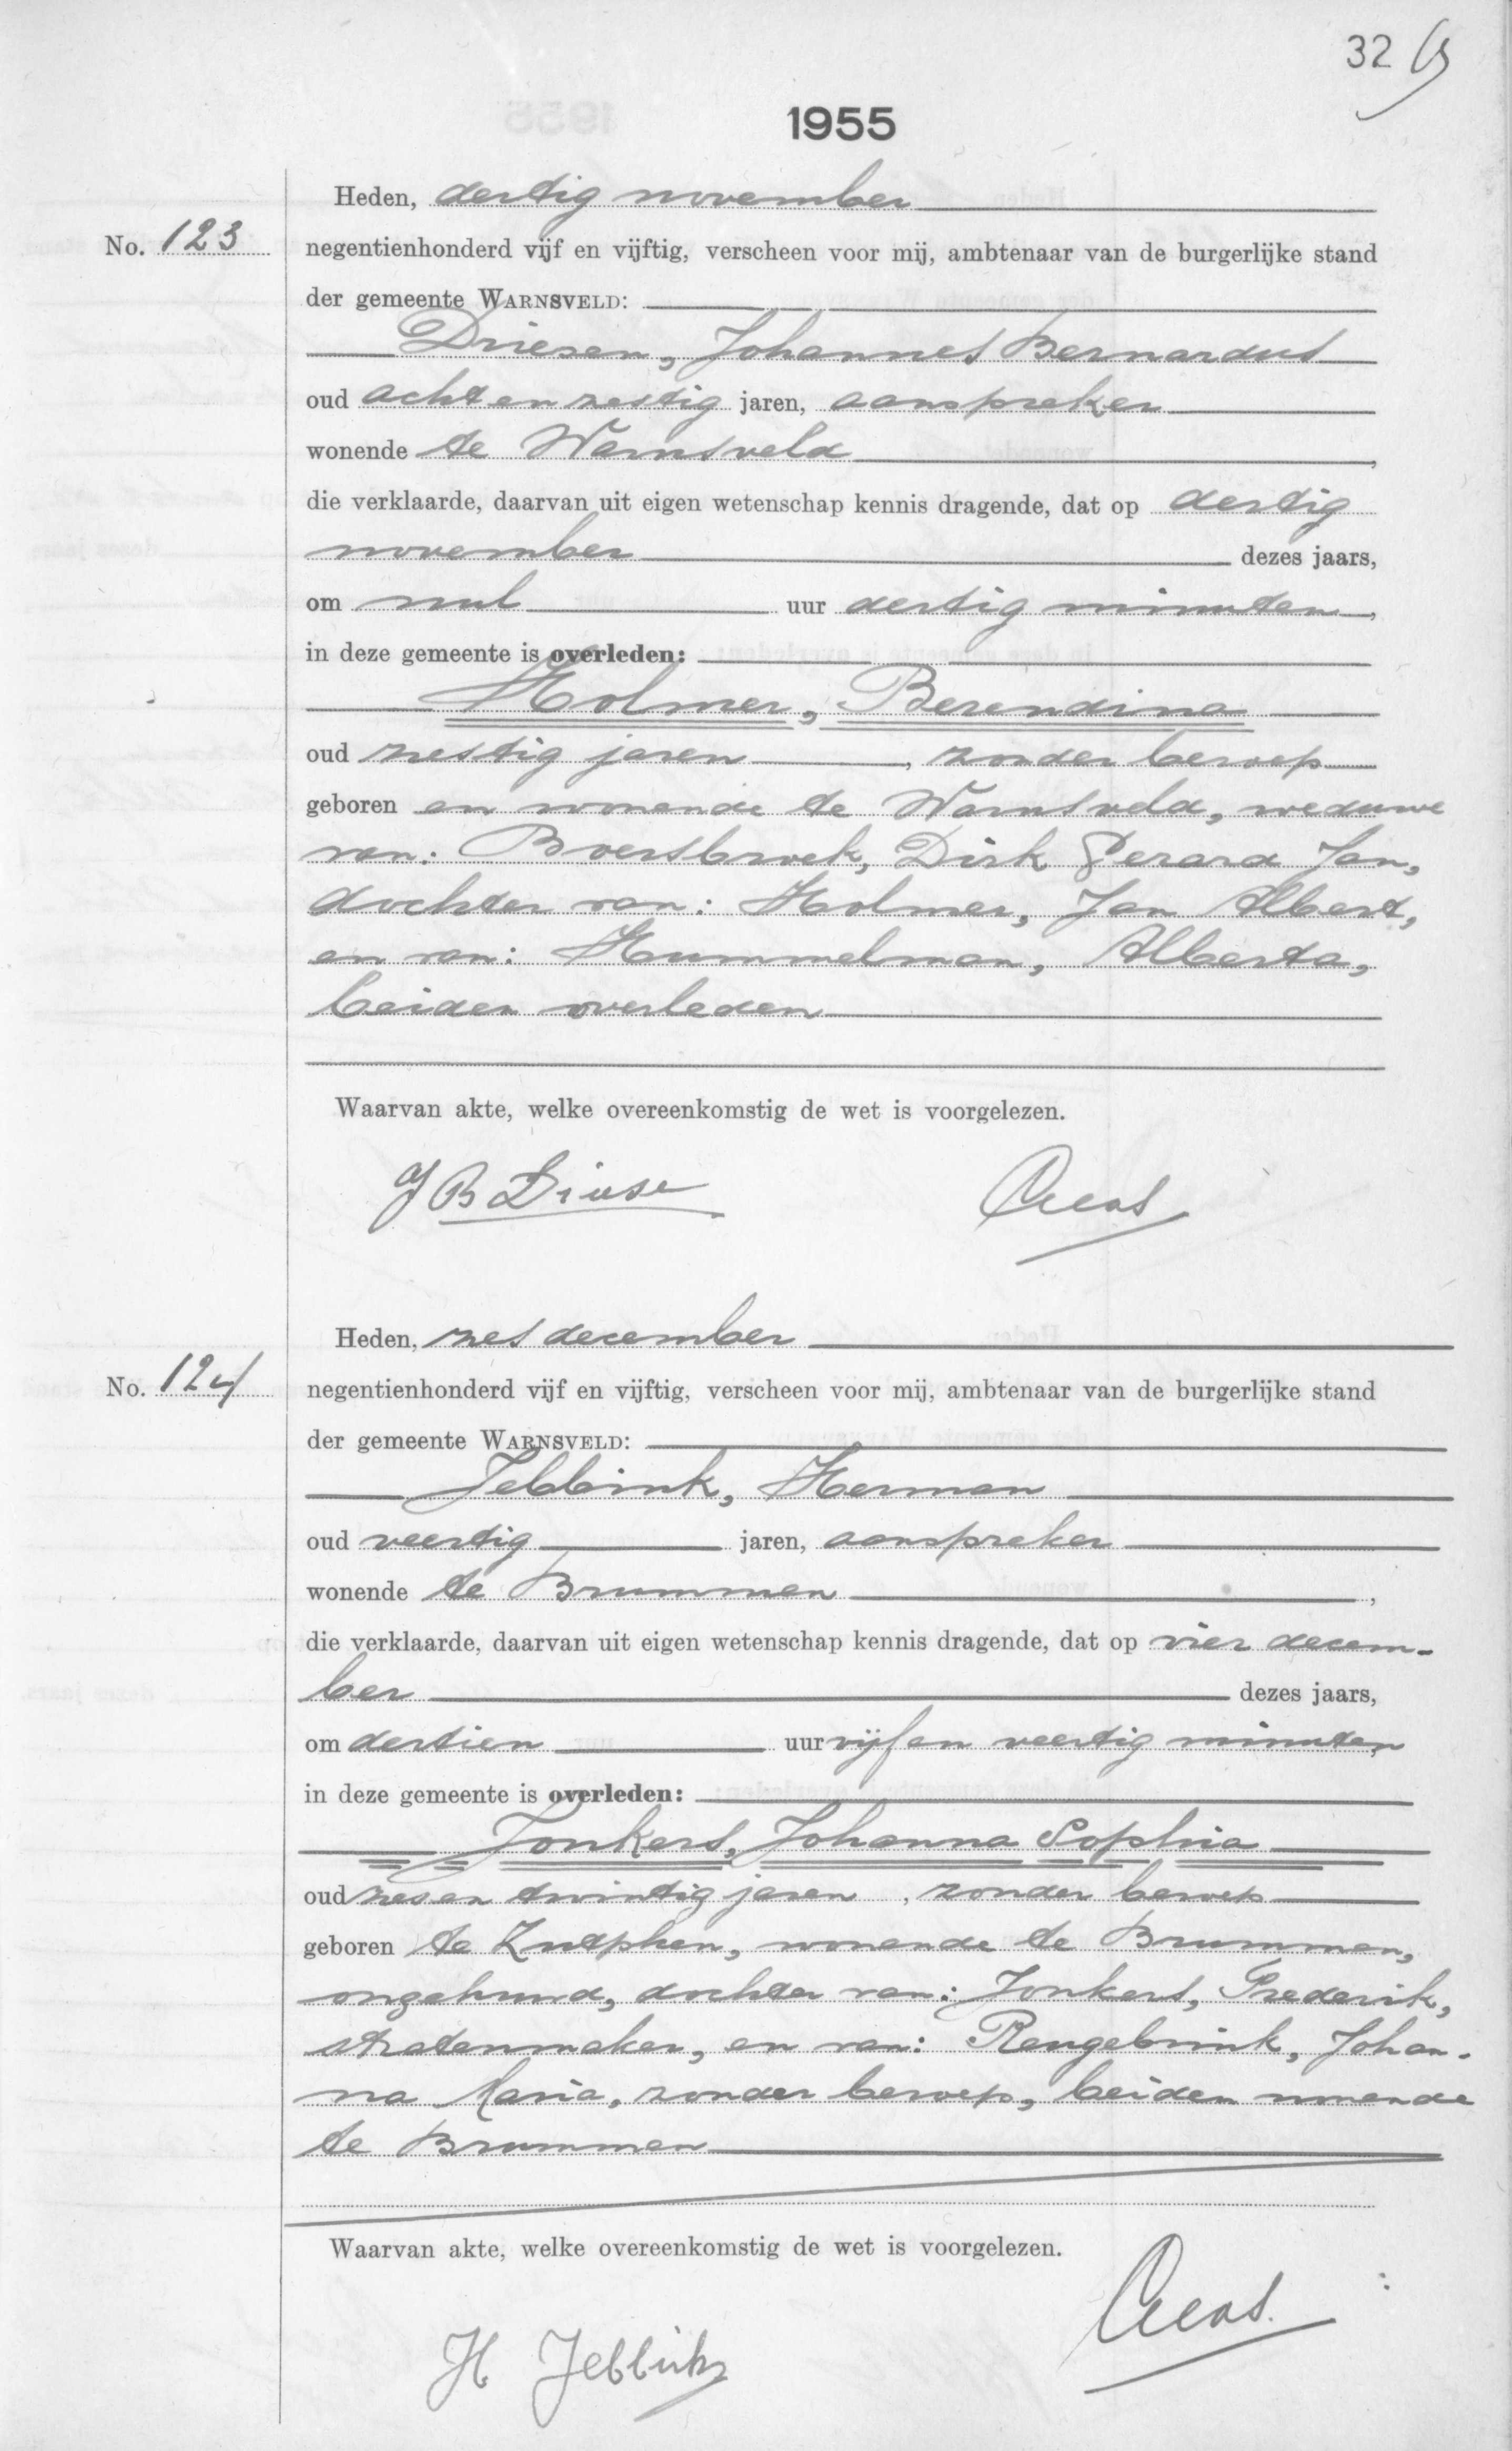 32
1955
Heden, dertig november
No. 123
negentienhonderd vijf en vijftig, verscheen voor mij, ambtenaar van de burgerlijke stand
der gemeente WARNSVELD:
Driesen, Johannes Bernardus
oud acht en zestig jaren, aanspreker
wonende te Warnsveld,
die verklaarde, daarvan uit eigen wetenschap kennis dragende, dat op dertig
november dezes jaars,
om nul uur dertig minuten,
in deze gemeente is overleden:
Holmer, Berendina
oud zestig jaren, zonder beroep
geboren en wonende te Warnsveld, weduwe
van: Boersbroek, Dirk Gerard Jan,
dochter van: Holmer, Jan Albert,
en van: Hummelman, Alberta,
beiden overleden
Waarvan akte, welke overeenkomstig de wet is voorgelezen.
J B Driese
Heden, zes december
No. 124
negentienhonderd vijf en vijftig, verscheen voor mij, ambtenaar van de burgerlijke stand
der gemeente WARNSVELD:
Jebbink, Herman
oud veertig jaren, aanspreker
wonende te Brummen,
die verklaarde, daarvan uit eigen wetenschap kennis dragende, dat op vier decem-
ber dezes jaars,
om dertien uur vijf en veertig minuten,
in deze gemeente is overleden:
Jonkers, Johanna Sophia
oud zes en twintig jaren, zonder beroep
geboren te Zutphen, wonende te Brummen,
ongehuwd, dochter van: Jonkers, Frederik,
stratenmaker, en van: Rengebrink, Johan-
na Maria, zonder beroep, beiden wonende
te Brummen
Waarvan akte, welke overeenkomstig de wet is voorgelezen.
H Jebbink